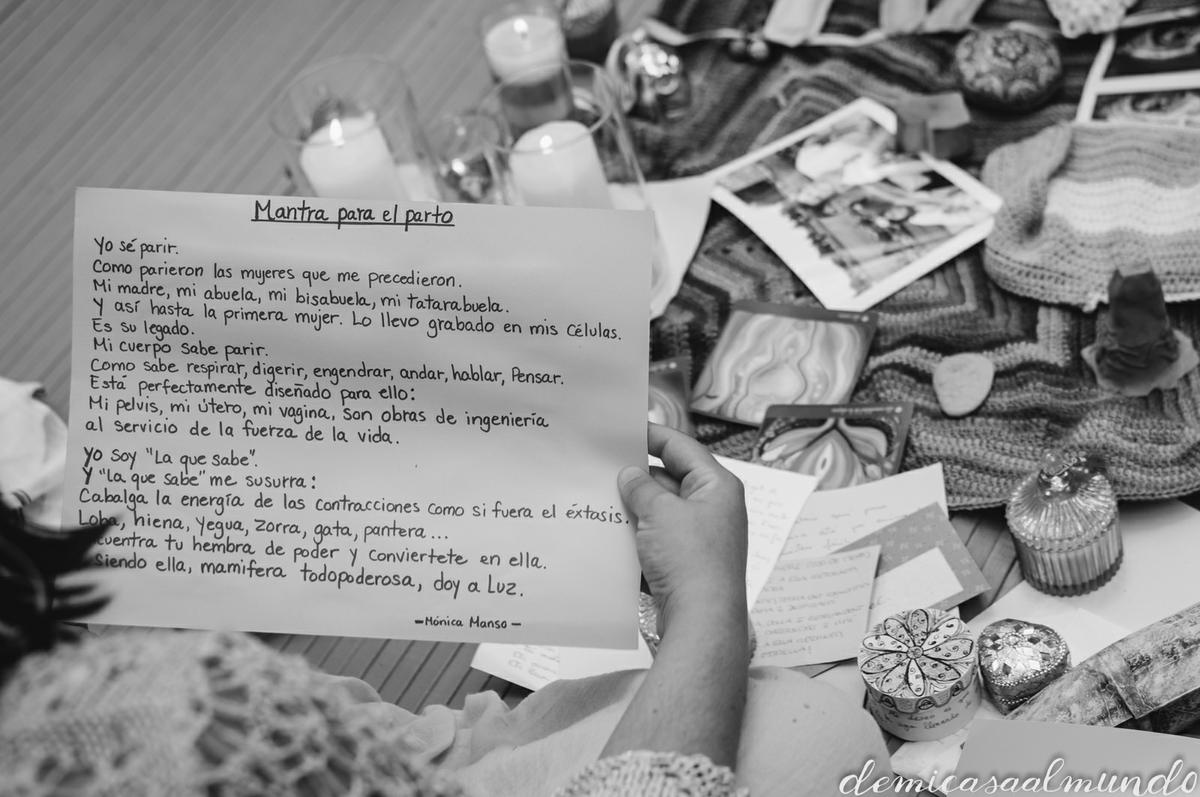 Mantra para el parto
Yo sé parir.
Como parieron las mujeres que me precedieron.
Mi madre, mi abuela, mi bisabuela, mi tatarabuela.
Y así hasta la primera mujer. Lo llevo grabado en mis células.
Es su legado.
Mi cuerpo sabe parir.
Como sabe respirar, digerir, engendrar, andar, hablar, Pensar.
Está perfectamente diseñado para ello:
Mi pelvis, mi útero, mi vagina, son obras de ingeniería
al servicio de la fuerza de la vida.
Yo soy "La que sabe".
Y "La que sabe" me susurra:
Cabalga la energía de las contracciones como si fuera el éxtasis.
Loba, hiena, yegua, zorra, gata, pantera...
cuentra tu hembra de poder y conviertete en ella.
siendo ella, mamifera todopoderosa, doy a Luz.
-Mónica Manso-
demicasaalmundo